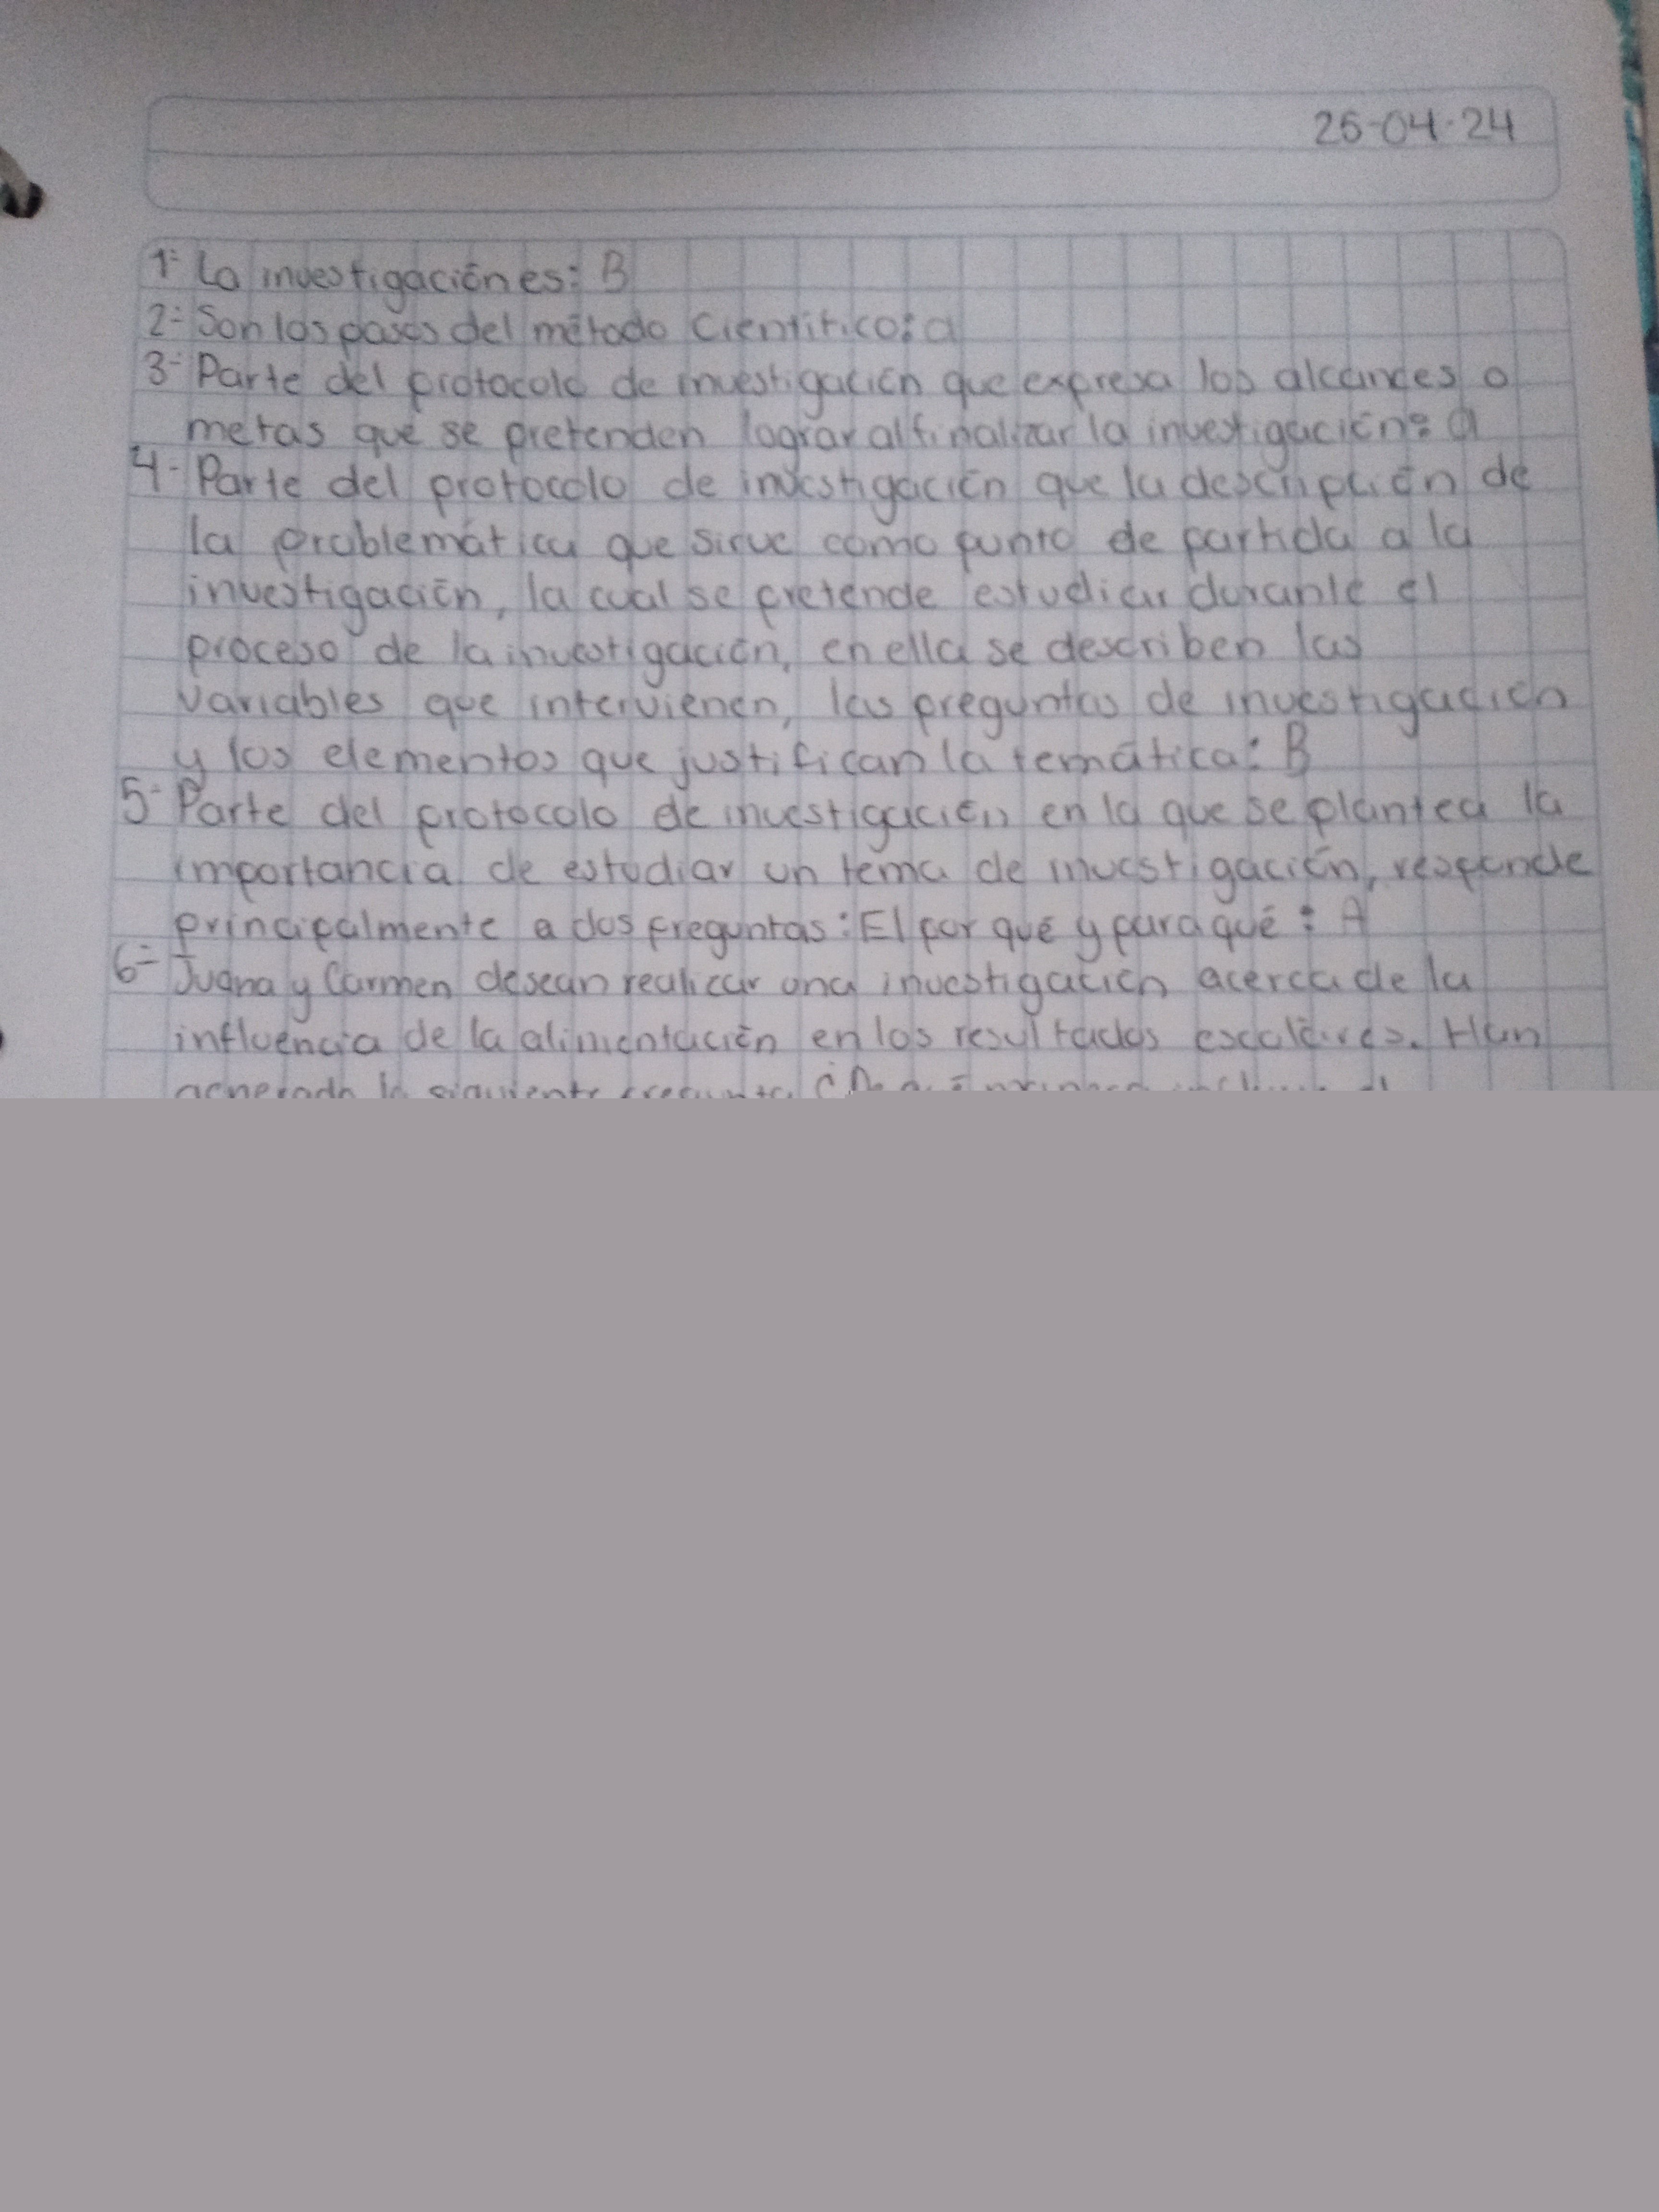 25-04-24
1- La investigación es: B
2- Son los pasos del método Científico: a
3- Parte del protocolo de investigación que expresa los alcances o
metas que se pretenden lograr al finalizar la investigación: a
4- Parte del protocolo de investigación que la descripción de
la problemática que sirve como punto de partida a la
investigación, la cual se pretende estudiar durante el
proceso de la investigación, en ella se describen las
variables que intervienen, las preguntas de investigación
y los elementos que justifican la temática: B
5- Parte del protocolo de investigación en la que se plantea la
importancia de estudiar un tema de investigación, responde
principalmente a dos preguntas: El por qué y para qué: A
6- Juana y Carmen desean realizar una investigación acerca de la
influencia de la alimentación en los resultados escolares. Han
generado la siguiente pregunta ¿De qué